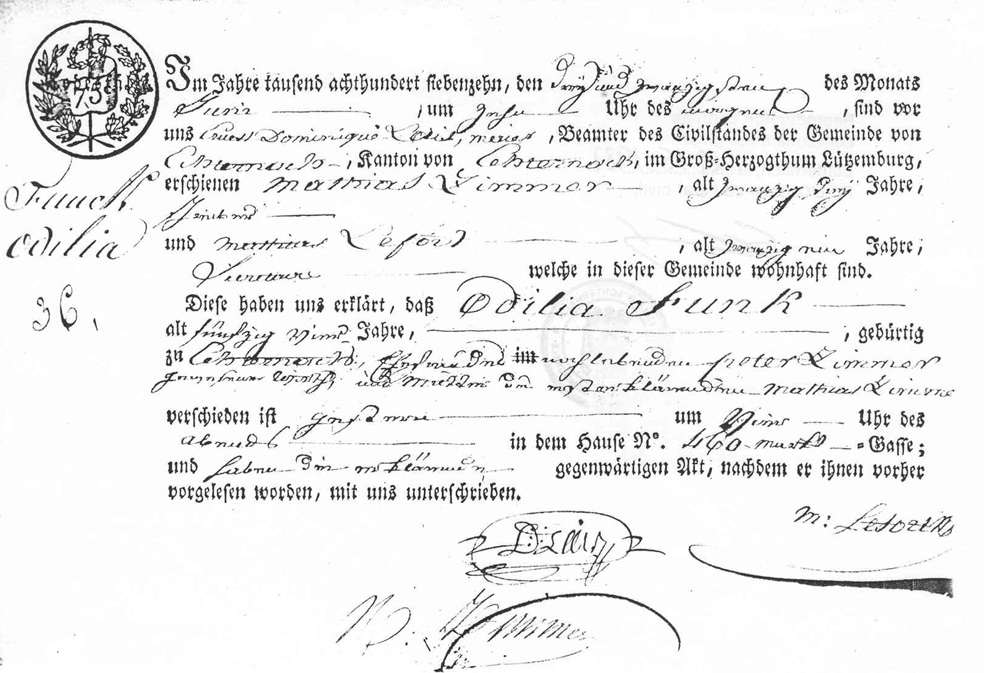 75
Im Jahre tausend achthundert siebenzehn, den drey und zwanzigsten des Monats
Juni, um zehn Uhr des morgens, sind vor
uns Dominique, Beamter des Civilstandes der Gemeinde von
Echternach, Kanton von Echternach, im Groß-Herzogthum Lützemburg,
erschienen Mathias Zimmer, alt zwanzig Jahre,
und Mathias Lefort, alt zwanzig Jahre,
welche in dieser Gemeinde wohnhaft sind.
Funck
Odilia
36.
Diese haben uns erklärt, daß Odilia Funk
alt fünfzig vier Jahre, gebürtig
zu Echternach, Peter Zimmer
und Mutter Mathias Zimmer
verschieden ist gestern um Vier Uhr des
abends in dem Hause N°. 460 -Gasse;
und haben die gegenwärtigen Akt, nachdem er ihnen vorher
vorgelesen worden, mit uns unterschrieben.
m: Lefort
M: Zimmer